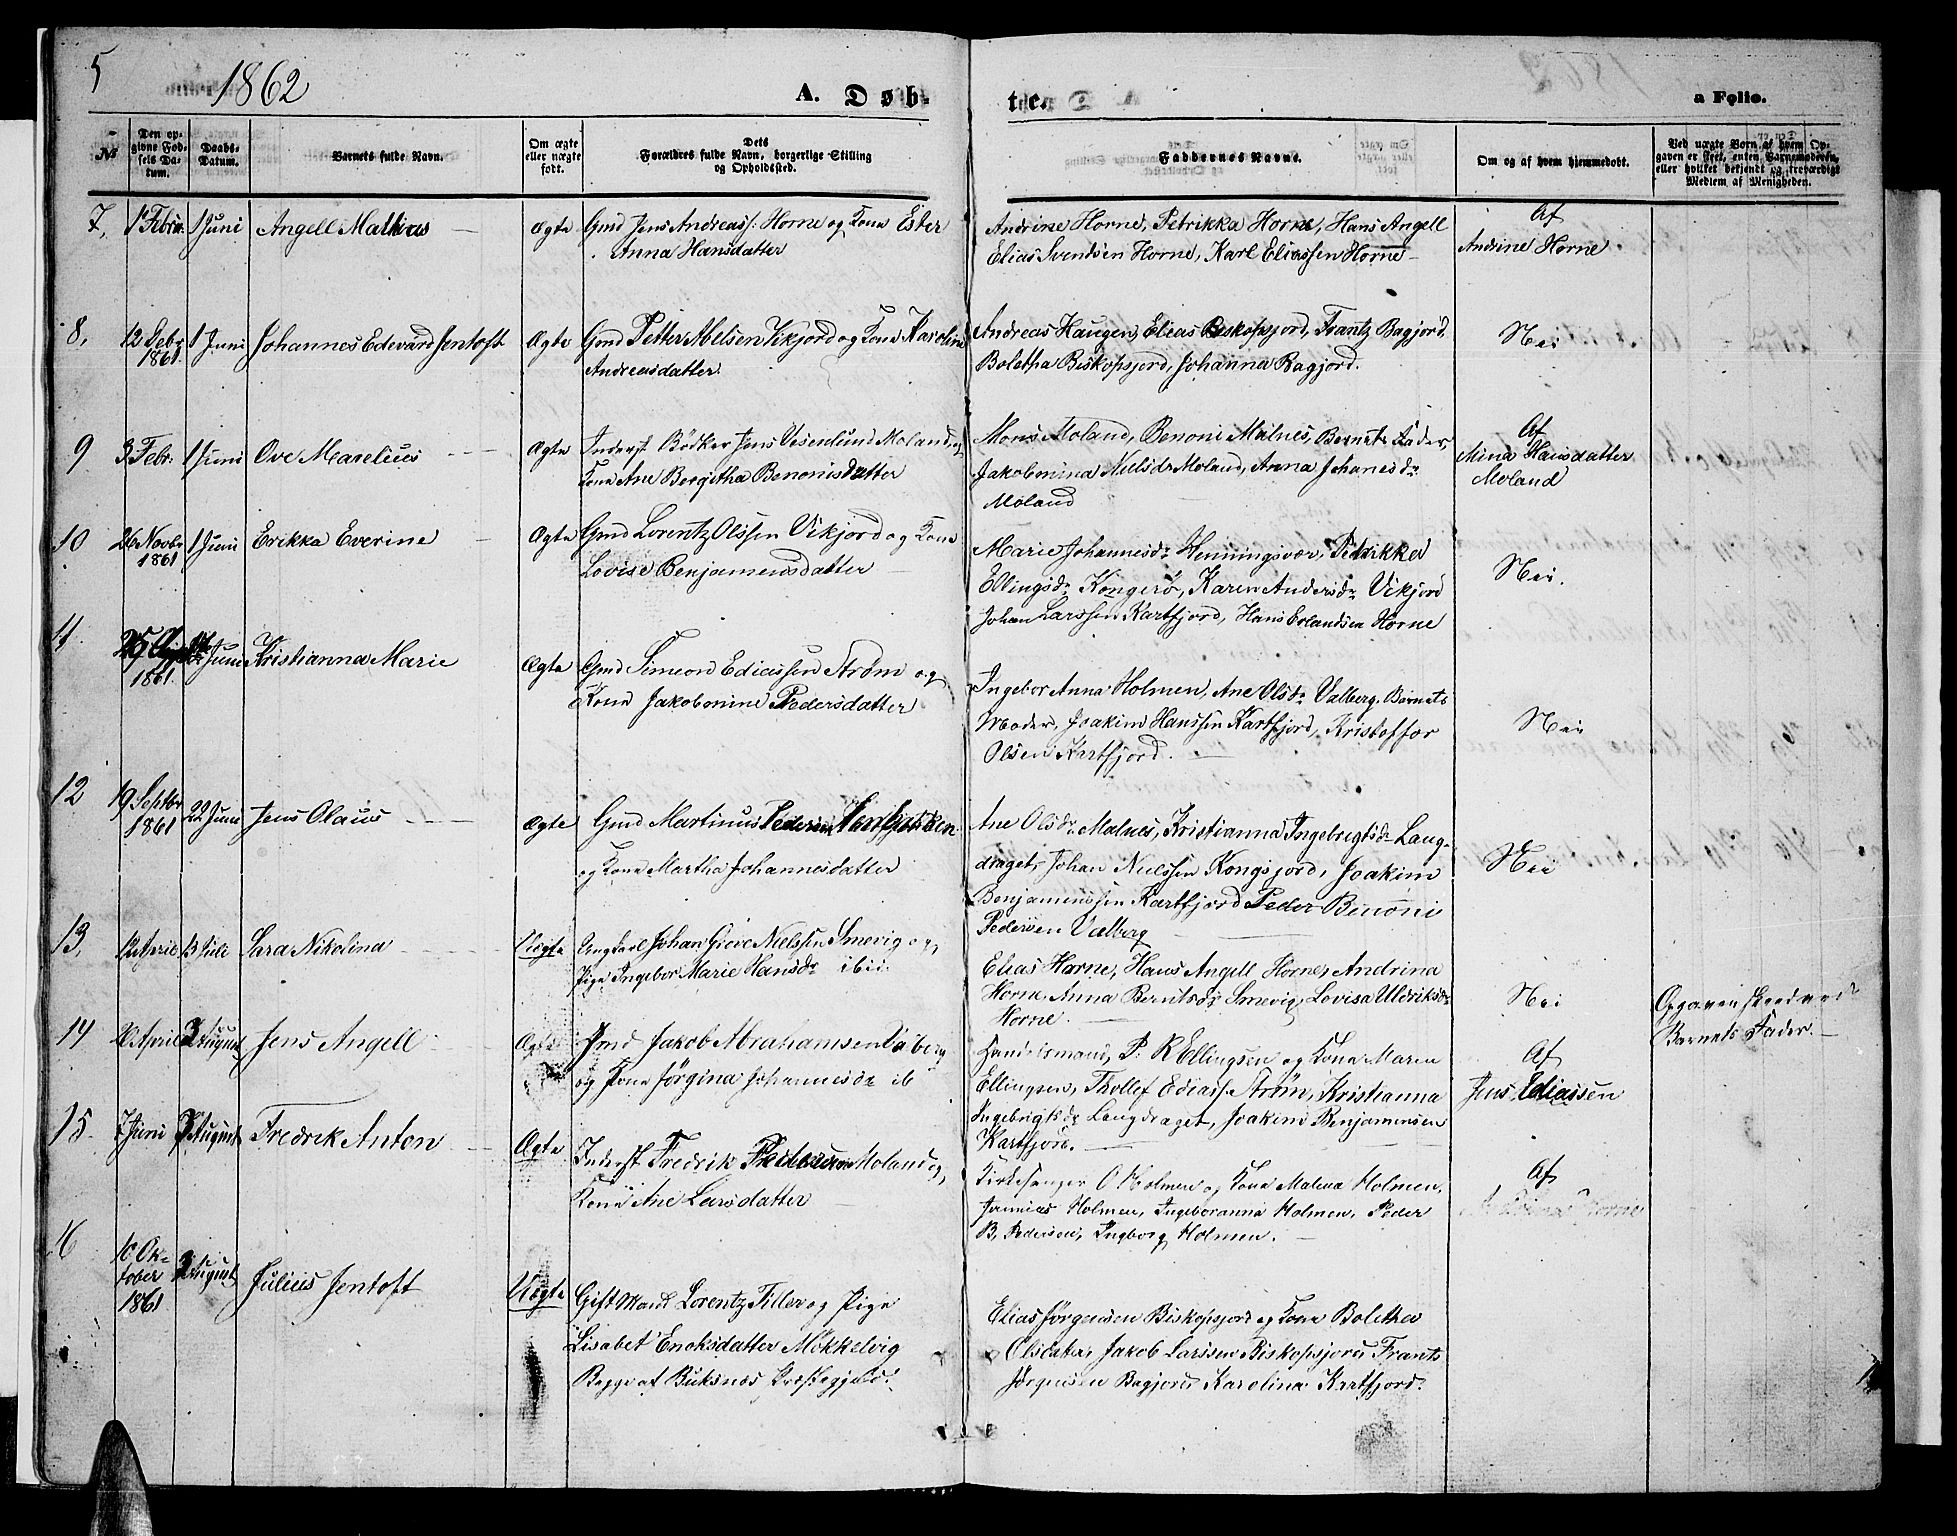 5
1862
A. Døb-
te.
a Folio.
№
Den opgivne Fødsels Datum.
Daabs-Datum.
Barnets fulde Navn.
Om ægte eller uægte født.
Dets Forældres fulde Navn, borgerlige Stilling og Opholdssted.
Faddernes Navne.
Om og af hvem hjemmedøbt.
Ved uægte Børn af hvem Opgaven er skeet, enten Barnemoderen, eller hvilket bekjendt og troværdigt Medlem af Menigheden.
7, 1 Febru. 1 Juni Angell Mathias Ægte Gmd Jens Andreass: Horne og Kone Ester
Anna Hansdatter
Andrine Horne, Petrikka Horne, Hans Angell
Elias Svendsen Horne, Karl Eliassen Horne
Af
Andrine Horne
8, 12 Febr 1861 1 Juni Johannes Edevard Jentoft Ægte Gmd Petter Abelsen Vikjord og Kone Karoline
Andreasdatter.
Andreas Haugen, Elias Biskopsjord, Frantz Bagjord,
Boletha Biskopsjord, Johanna Bagjord.
Nei
9 3 Febr: 1 Juni Ove Marelius Ægte Inderst Bödker Jens Vesenlund Moland og
Kone Ane Bergitha Benonisdatter
Mons Moland, Benoni Malnes, Barnets Fader,
Jakobonina Nielsdr Moland, Anna Johanesdr
Moland
Af
Mina Hansdatter
Moland
10 26 Novbr 1861 1 Juni Erikka Everine Ægte Gmd Lorentz Olssen Vikjord og Kone
Lovise Benjamensdatter
Marie Johannesdr Henningivær, Petrikka
Ellingsdr Kongerø, Karen Andersdr Vikjord
Johan Larssen Kartfjord, Hans Erlandsen Horne
Nei.
11. 25 1861. Juni Kristianna Marie Ægte Gmd Simeon Ediassen Strøm og
Kone Jakobonine Pedersdatter
Ingebor Anna Holmen, Ane Olsdr Valberg, Barnets
Moder, Joakim Hanssen Kartfjord, Kristoffer
Olsen Kartfjord.
Nei
12 19 Septbr 1861 22 Juni Jens Olaus Ægte Gmd Martinus Pedersen
og Kone Martha Johannesdatter
Ane Olsdr Malnes, Kristianna Ingebrigtsdr Lang-
draget, Johan Nielssen Kongsjord, Joakim
Benjamenssen Kartfjord Peder Benoni
Pedersen Valberg
Nei
13, 12 April 13 Juli Sara Nikolina Uægte Ungkarl Johan Giöve Nielssen Smevig og
Pige Ingebor Marie Hansdr ibid.
Elias Horne, Hans Angell Horne, Andrina
Horne, Anna Berntsdr Smevig, Lovisa Uldriksdr
Horne.
Nei
Opgaven skeed ved
Barnets Fader.
14 20 April 3 August Jens Angell Ægte Gmd Jakob Abrahamsen Valberg
og Kone Jörgina Johannesdr ib
Handelsmand P: R Ellingsen og Kone Maren
Ellingsen, Thollef Ediass: Strøm, Kristianna
Ingebrigtsdr Langdraget, Joakim Benjamensen
Kartfjord.
Af
Jens Ediassen
15. 7 Juni 3 August Fredrik Anton Ægte Inderst Fredrik Pedersen Moland og
Kone Ane Larsdatter
Kirkesanger O Holmen og Kone Malena Holmen,
Jermias Holmen, Ingeboranna Holmen, Peder
B. Pedersen, Ingborg Holmen.
Af
Horne
16 10 Oktober 1861 3 August Julius Jentoft Uægte Gift Mand Lorentz Tiller og Pige
Lisabet Enoksdatter Mökkelvig
Begge af Buksnes Præstegjeld.
Elias Jörgensen Biskopsjord og Kone Boletha
Olsdatter, Jakob Larssen Biskopsjord, Frants
Jörgensen Bagjord Karolina Kartfjord.